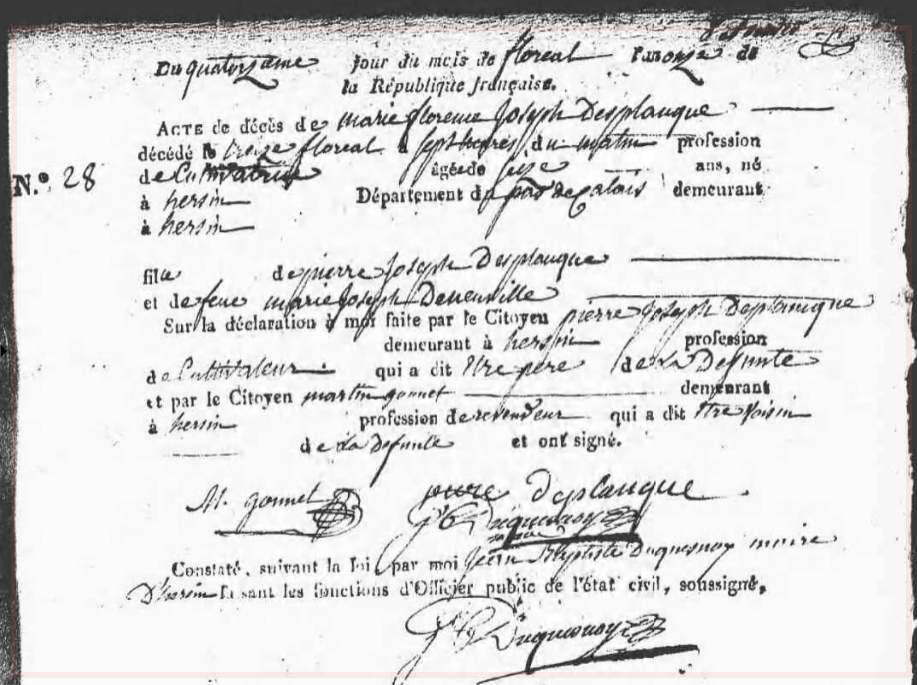 Du quatorzieme jour du mois de floreal l'an onze de
la République française.
ACTE de décès de marie florence Joseph Desplanque
décédé le treize floreal à sept heures du matin profession
N.º 28
de Cultivatrice âgée de seize ans, né
à hersin Département du pas de Calais demeurant
à hersin
fille de pierre Joseph Desplanque
et de feue marie Joseph Deneuville
Sur la déclaration à moi faite par le Citoyen pierre Joseph Desplanque
demeurant à hersin profession
de Cultivateur qui a dit Etre pere de La Defunte
et par le Citoyen martin gonnet demeurant
à hersin profession de revendeur qui a dit Etre Voisin
de La Defunte et ont signé.
M. gonnet pierre Deplanque
J B Duquesnoy
Constaté, suivant la loi, par moi Jean Baptiste Duquesnoy maire
D'hersin faisant les fonctions d'Officier public de l'état civil, soussigné,
J B Duquesnoy